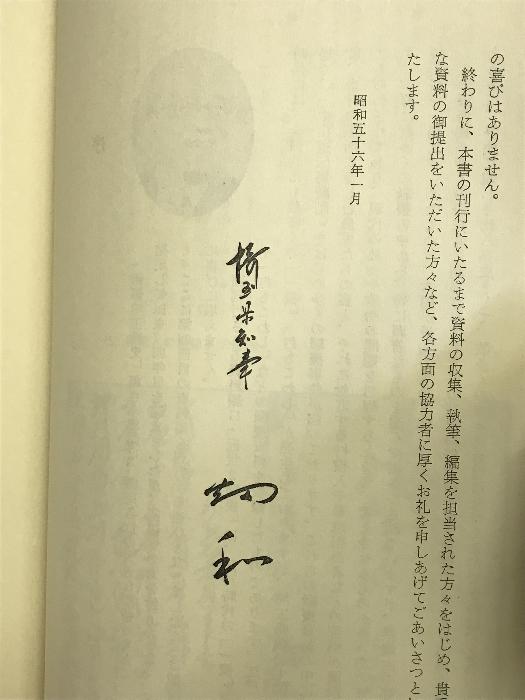 の喜びはありません。
終わりに、本書の刊行にいたるまで資料の収集、執筆、編集を担当された方々をはじめ、貴
な資料の御提出をいただいた方々など、各方面の協力者に厚くお礼を申しあげてごあいさつと
たします。
昭和五十六年一月
埼玉県知事
畑和